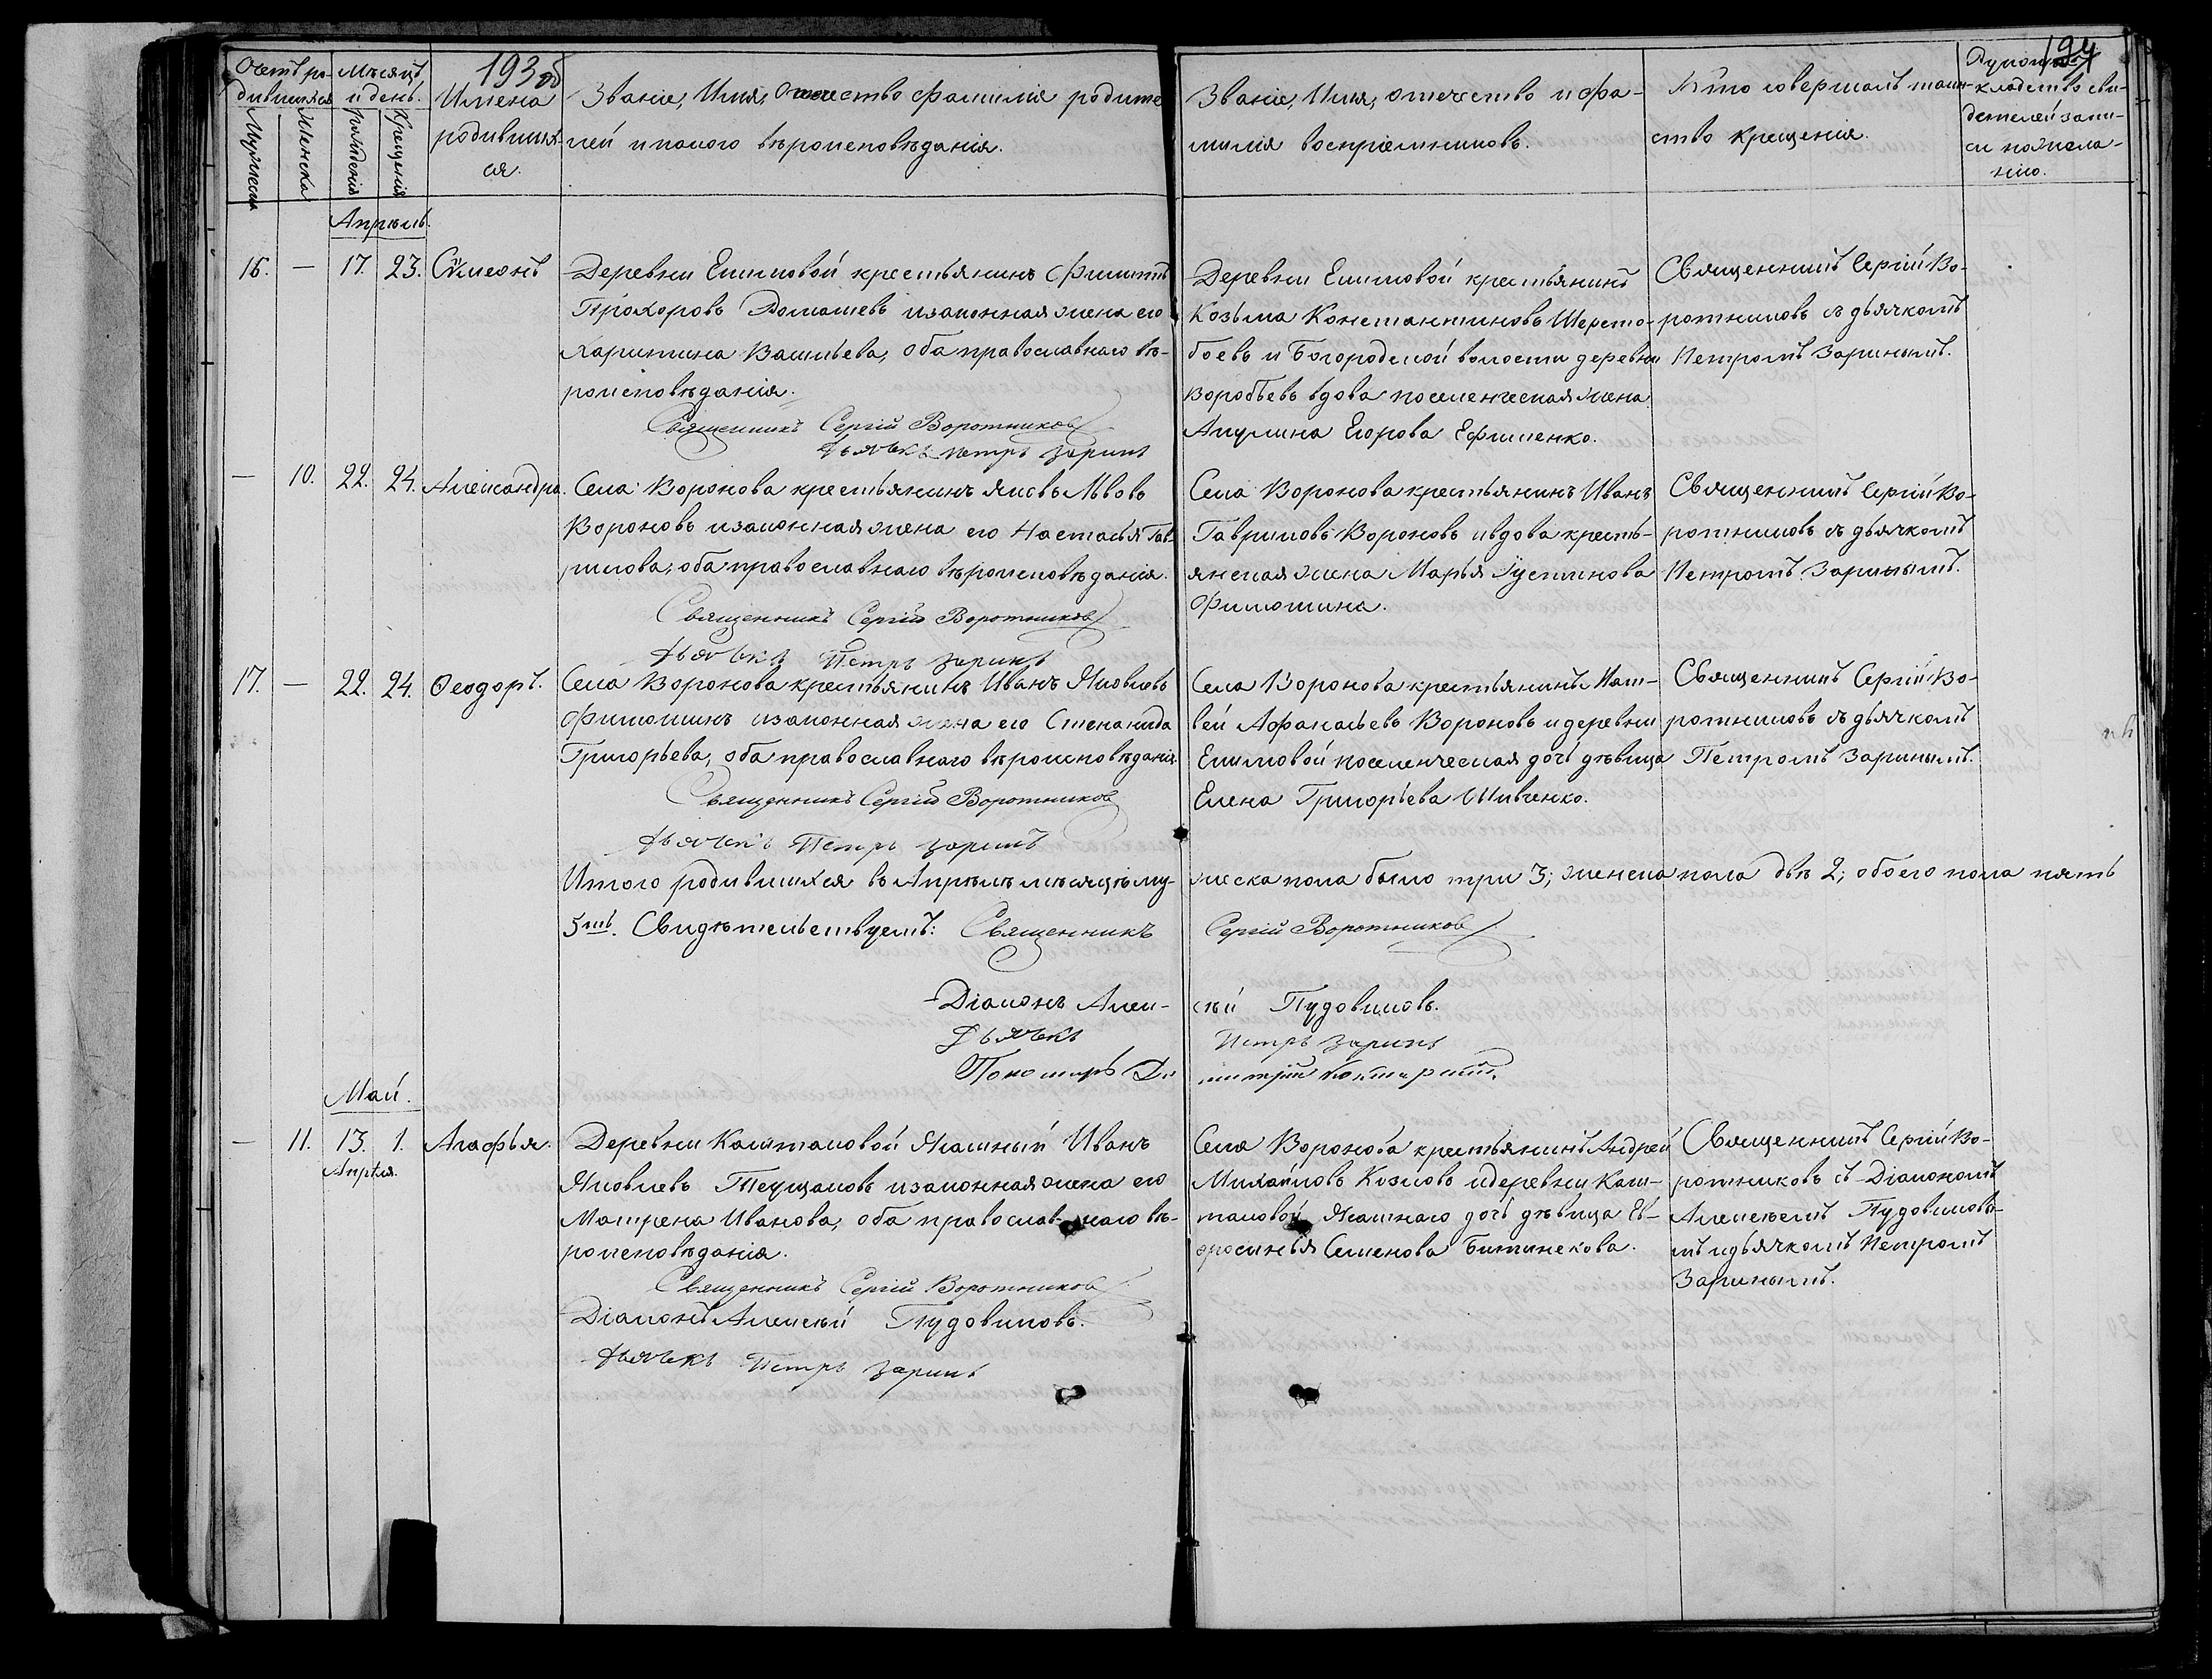 193 об
194
Счетъ ро-
дившихся
Мѣсяцъ
и день.
Мужеска
Женска
рожденія
Крещенія
Имена
родивших-
ся.
Званіе, Имя, Отечество Фамилія родите
лей и какого вѣроисповѣданія.
Званіе, Имя, отечество и фа-
милія воспріемниковъ.
Кто совершалъ таин-
ство крещенія.
Рукопри-
кладство сви-
детелей запи-
си по жела-
нію.
Апрѣль.
16. — 17. 23. Сѵмеонъ
Деревни Екимовой крестьянинъ Филиппъ
Прохоровъ Домашевъ изаконная жена его
Харитина Васильева, оба православнаго вѣ-
роисповѣданія.
Священникъ Сергій Воротников
Дьячекъ Петръ Заринъ
Деревни Екимовой крестьянинъ
Козьма Константиновъ Шерето-
боевъ и Богородской волости деревни
Воробьевъ вдова поселенческая жена
Акулина Егорова Ефименко.
Священникъ Сергій Во-
ротниковъ съ дьячкомъ
Петромъ Заринымъ.
— 10. 22. 24. Александра.
Села Воронова крестьянинъ Яковъ Львовъ
Вороновъ изаконная жена его Настасья Гав-
рилова, оба православнаго вѣроисповѣданія.
Священникъ Сергій Воротников
Дьячекъ Петръ Заринъ
Села Воронова крестьянинъ Иванъ
Гавриловъ Вороновъ ивдова кресть-
янская жена Марья Устинова
Филюшина.
Священникъ Сергій Во-
ротниковъ съ дьячкомъ
Петромъ Заринымъ.
17. — 22. 24. Ѳеодоръ.
Села Воронова крестьянинъ Иванъ Яковлевъ
Филюшинъ изаконная жена его Степанида
Григорьева, оба православнаго вѣроисповѣданія.
Священникъ Сергій Воротников
Дьячекъ Петръ Заринъ
Села Воронова крестьянинъ Мат-
вей Афанасьевъ Вороновъ идеревни
Екимовой поселенческая дочь дѣвица
Елена Григорьева Шивченко.
Священникъ Сергій Во-
ротниковъ съ дьячкомъ
Петромъ Заринымъ.
Итого родившихся въ Апрѣлѣ мѣсяцѣ му-
жеска пола было три 3; женска пола двѣ 2; обоего пола пять
5ть. Свидѣтельствуемъ: Священникъ Сергій Воротников
Діаконъ Алек- сѣй Пудовиковъ.
Дьячекъ Петръ Заринъ
Пономарь Ди митрій
Май.
— 11. 13. 1. Агафья.
Апрѣля.
Деревни Каштаковой Ясашный Иванъ
Яковлевъ Тегущаковъ изаконная жена его
Матрена Иванова, оба православ-наго вѣ-
роисповѣданія.
Священникъ Сергій Воротников
Діаконъ Алексѣй Пудовиковъ.
Дьячекъ Петръ Заринъ
Села Воронова крестьянинъ Андрей
Михайловъ Козловъ идеревни Каш-
таковой Ясашнаго дочь дѣвица Ев-
фросинья Семенова Битинекова.
Священникъ Сергій Во-
ротниковъ съ Діакономъ
Алексѣемъ Пудовиковы-
мъ идьячкомъ Петромъ
Заринымъ.